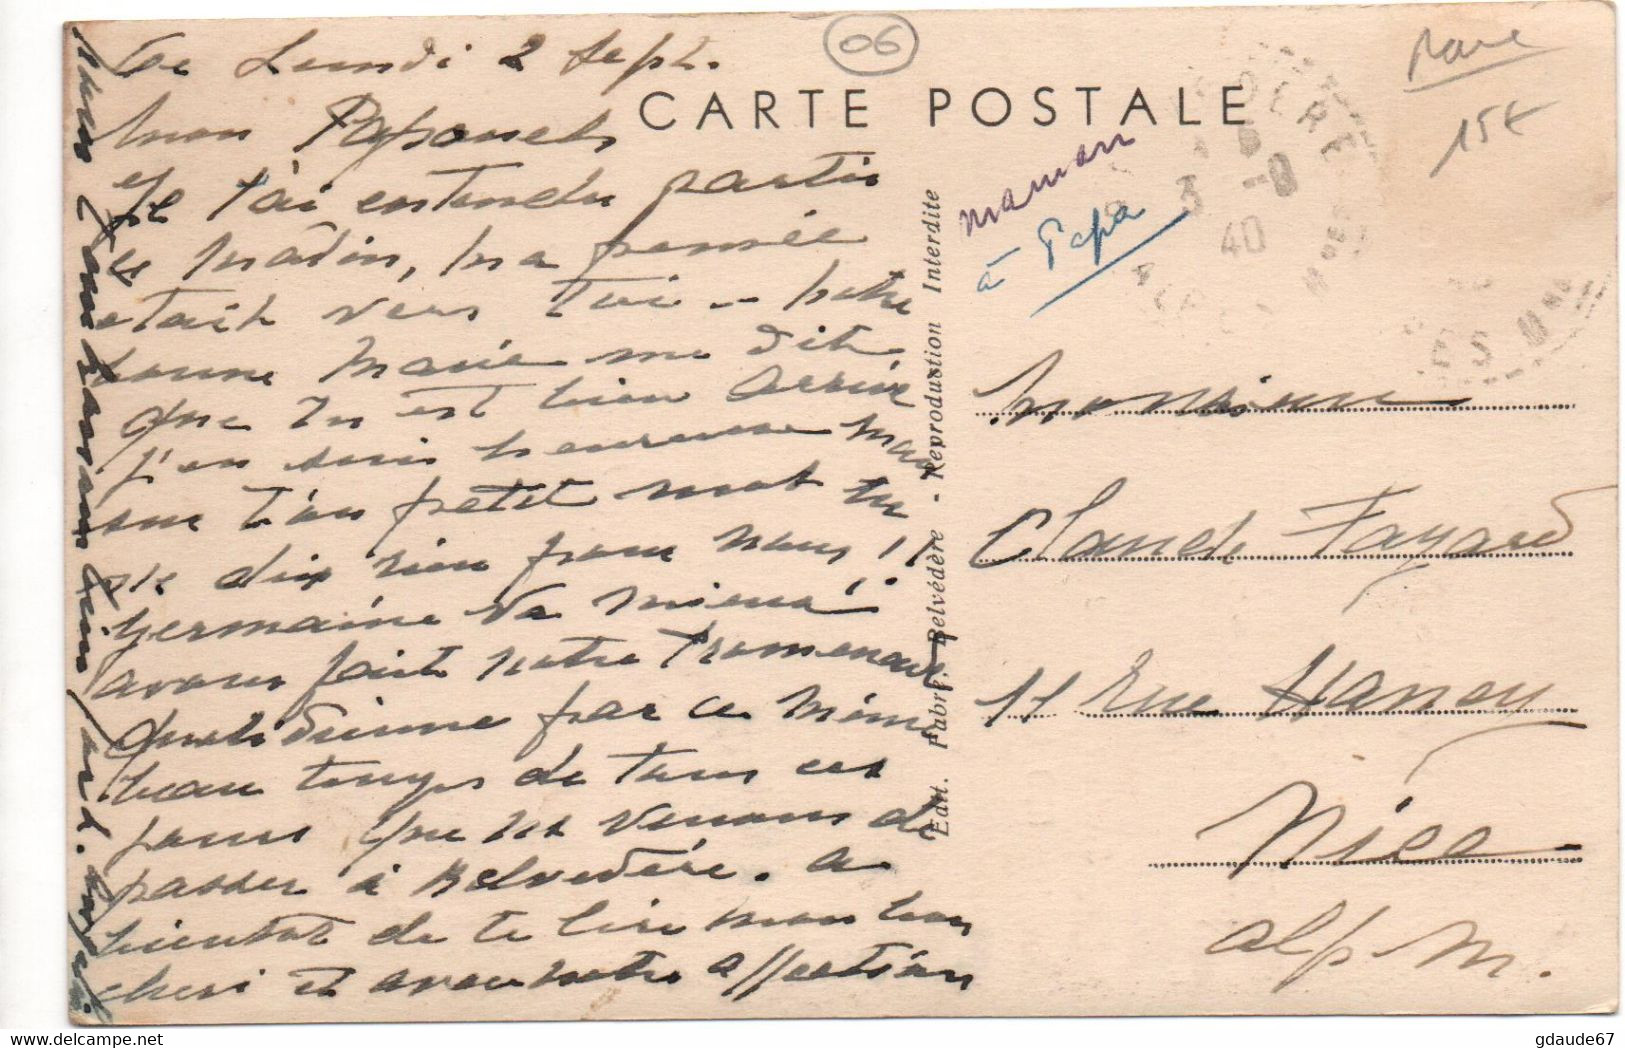 06
rare
15€
CARTE POSTALE
Ce Lundi 2 Sept.
Mon
Je t'ai entendu partir
ce matin, ma pensée
etait vers toi — notre
bonne Marie me dit
que tu est bien arrivé
j'en suis heureuse mais
sur t'on petit mot tu
ne dix rien pour nous!!
Germaine va mieux!
avons fait notre Promenade
quotidienne par ce même
beau temps de tous ces
jours que ns venons de
passer à Belvédère. A
bientot de te lire mon bon
cheri et avec notre affection
Edit. Fabre. Belvédère - Reproduction Interdite
maman
à Papa
3 -9
40
Monsieur
Claude Fayard
11 Rue Hancy
Nice
Alp. M.
gdaude67